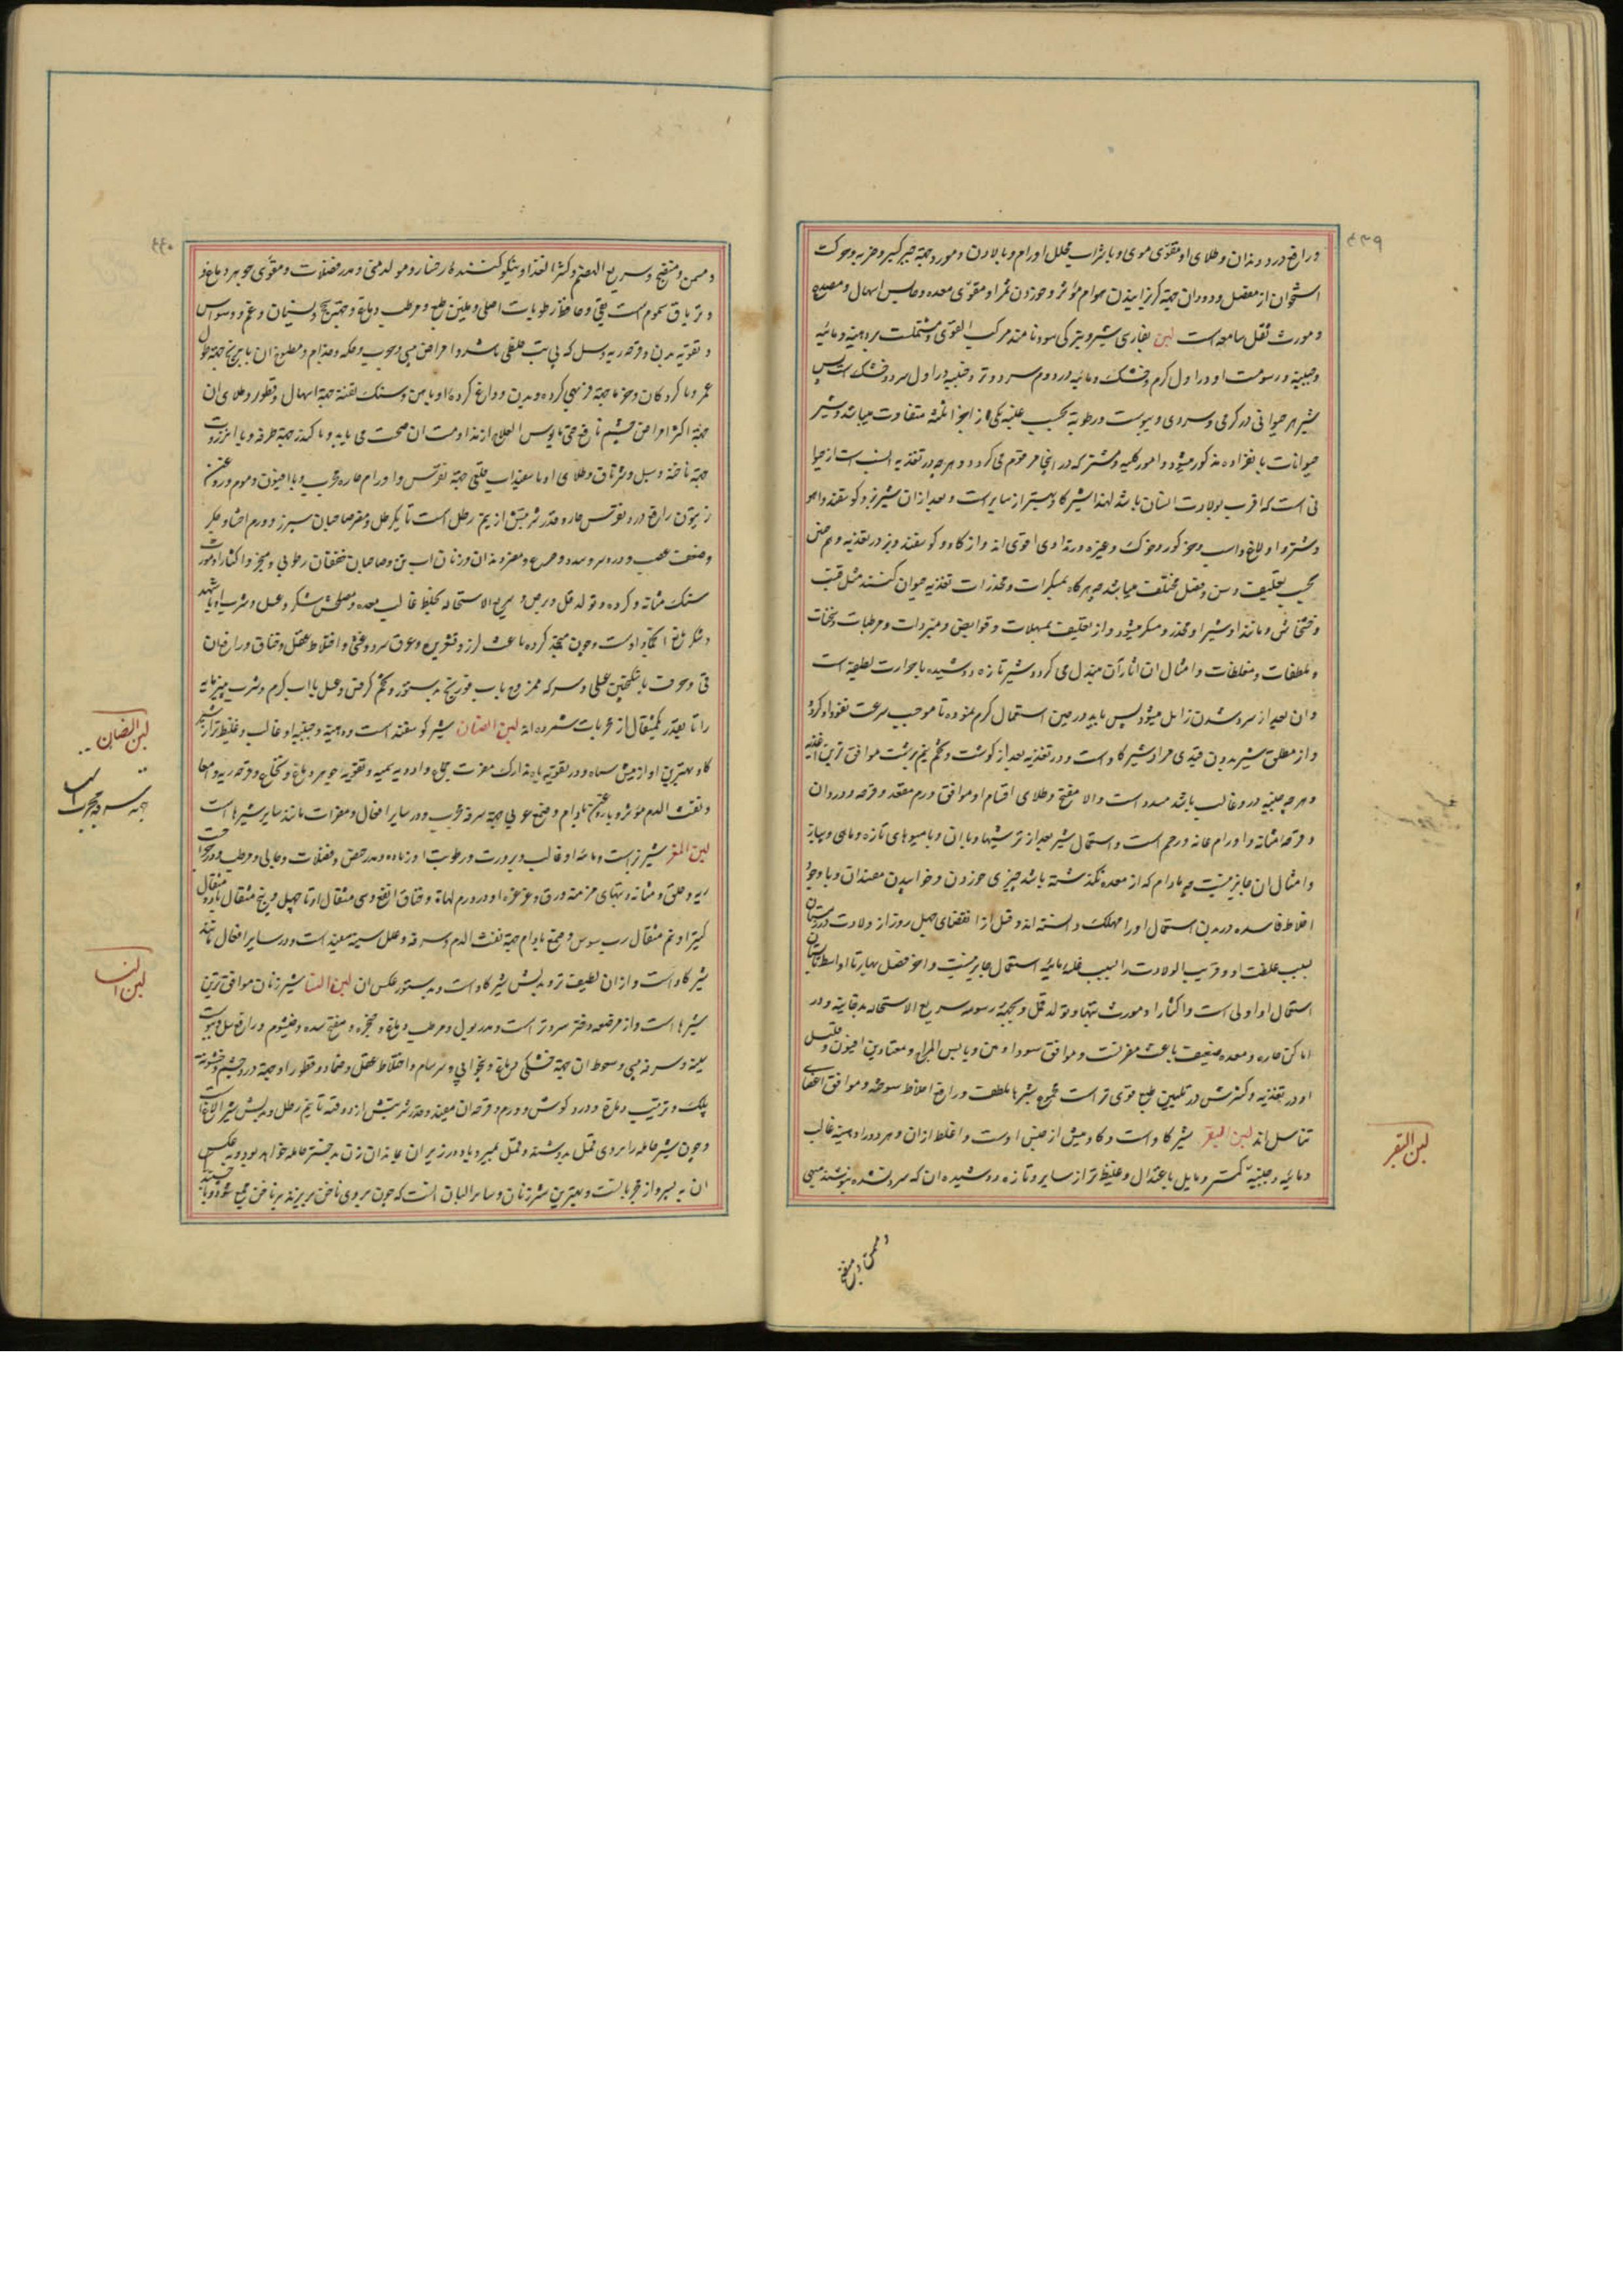 ۴۳۹
و رافع درد دندان و طلای او مقوّی موی و با شراب محلل اورام و با لادن و مورد جهة جبر کسر و ضربه و حرکت
استخوان از مفصل و دود ان جهة کریزانیدن هوام مؤثر و خوردن ثمر او مقوّی معده و حابس اسهال و مصدع
و مورث ثقل سامعه است لبن بفارسی شیر و بترکی سود نامند مرکب القوی و مشتملست بر دهنیة و مائیه
و جبنیة و رسومت او در اول کرم و خشک و مائیه در دوم سرد و تر و جبنیه در اول سرد و خشک است پس
شیر هر حیوانی در کرمی و سردی و یبوست و رطوبة بحسب غلبه یکی از اجزا ثلثه متفاوت میباشد و شیر
حیوانات بانفراده مذکور میشود و امور کلیه و مشترکه در اینجا مرقوم می کردد و هر چه در تغذیه انسب است از حیوا
نی است که اقرب بولادت انسان باشد لهذا شیر کاو بهتر از سایر است و بعد از ان شیر بز و کوسفند و اهو
و شتر و اولاغ و اسب و خوک و غیره و در تداوی اقوی اند و از کاو و کوسفند و بز در تغذیه و هم چنین
بحسب تعلیف و سن و فصل مختلف میباشد چه هرکاه بمسکرات و مخدرات تغذیه حیوان کنند مثل قنب
و خشخاش و مانند او شیر او مخدر و مسکر میشود و از تعلیف بمسهلات و قوابض و مبردات و مرطبات و مسخنات
و ملطفات و مغلظات و امثال ان اثار آن مبذل می کردد و شیر تازه دوشیده با حرارت لطیفه است
و ان بعد از سرد شدن زایل میشود پس باید در حین استعمال کرم نموده تا موجب سرعت نفوذ او کردد
و از مطلق شیر بدون قیدی مراد شیر کاو است و در تغذیه بعد از کوشت و تخم نیم برشت موافق ترین اغذیه
و هر چه جبنیه در او غالب باشد مسدد است والا مفتح و طلای اقسام او موافق ورم مقعد و قرحه و درد ان
و قرحه مثانه و اورام عانه و رحم است و استعمال شیر بعد از ترشیها و با ان و با میوهای تازه و ماهی و پیاز
و امثال ان جایز نیست و مادام که از معده نکذشته باشد چیزی خوردن و خوابیدن مفسد ان و با وجود
اخلاط فاسده در بدن استعمال او را مهلک دانسته اند و قبل از انقضای چهل روز از ولادت و در زمستان
بسبب علفت او و قریب الولادت را بسبب غلبه مائیه استعمال جایز نیست و اخر فصل بهار تا اواسط تابستان
استعمال او اولی است و اکثار او مورث تبها و تولد قمل و بجهة رسومه سریع الاستحاله بدخانیة و در
اماکن حاره و معده ضعیف باعث مضرتست و موافق سوداوین و یابس المزاج و معتادین افیون و قلیل
او در تغذیه و کثیرش در تلیین طبع قوی تر است و مجموع شیرها ملطف و رافع اخلاط سوخته و موافق اعضای
تناسل اند لبن البقر شیر کاو است و کاومیش از جنس اوست و اغلظ از ان و هر دو را دهنیة غالب
و مائیه و جبنیة کمتر و مایل باعتدال و غلیظ تر از سایر و تازه دوشیده ان که سرد نشده بنوشند مبهی
لبن البقر
و مسمن و منضج
۴۴۰
و مسمن و منضج و سریع الهضم و کثیر الغذا و نیکو کننده رخسار و مولد منی و مدر فضلات و مقوّی جوهر دماغ
و تریاق سموم است و حافظ رطوبات اصلی و ملین طبع و مرطب دماغ و جهة نسیان و غم و وسواس
و تقویه بدن و قرحه ریه و سل که بی تب خلطی باشد و امراض و جرب و حکه و جذام و مطبوخ ان با برنج جهة طول
عمر و با کردکان و خرما جهة فربهی کرده و بدن و داغ کرده او باهن و سنک تفته جهة اسهال و قطور و طلای ان
جهة اکثر امراض چشم نافع حتی مایوس العلاج از مداومت ان صحت می یابد و با کندر جهة طرفه و با انزروت
جهة ناخنه و سبل و شرناق و طلای او با سفیداب قلعی جهة نقرس و اورام حاره مجرب و با افیون و موم و روغن
زیتون رافع درد نقرس حار و قدر شربتش از نیم رطل است تا یکرطل و مضر صاحبان سپرز و ورم احشا و جکر
و ضعف عصب و دوار و سدد و صرع و مضر دندان و زنان ابستن و صاحبان خفقان رطوبی و مبخر و اکثار او مورث
سنک مثانه و کرده و تولد قمل و برص و سریع الاستحاله بخلط غالب معده و مصلحش شکر و عسل و شرب او باشهد
و شکر مانع انعقاد اوست و چون منجمد کرده باعث لرز و قشعریره و عرق سرد و غشی و اختلاط عقل و خناق و رافع ان
قی و حرفت با سکنجبین عسلی و سرکه ممزوج باب فودنج بدستور و تخم کرفس و عسل با اب کرم و شرب پنیر مایه
را تا بقدر یکمثقال از مجربات شمرده اند لبن الضان شیر کوسفند است دهنیة و جبنیه او غالب و غلیظ تر از شیر
کاو و بهترین او از میش سیاه و در تقویه باه و تدارک مضرت جماع و ادویه سمیه و تقویه جوهر دماغ و نخاع و قرحه ریه و امعا
و نفث الدم مؤثر و با روغن بادام و صمغ عربی جهة سرفه مجرب و در سایر افعال و مضرات مانند سایر شیرها است
لبن المعز شیر بز است و مائیه او غالب و برودت و رطوبت او زیاده و مدر حیض و فضلات و جالی و مرطب و در جراحت
ریه و حلق و مثانه و تبهای مزمنه و دق و غرغره او در ورم لهاة و خناق انفع و سی مثقال او تا چهل و پنج مثقال با دو مثقال
کتیرا و نیم مثقال رب سوس و صمغ بادام جهة نفث الدم و سرفه و علل سینه مفید است و در سایر افعال مانند
شیر کاو است و از ان لطیف تر و بدلش شیر کاو است و بدستور عکس ان لبن النسا شیر زنان موافق ترین
شیرها است و از مرضعه دختر سردتر است و مدر بول و مرطب دماغ و حنجره و مفتح سده و خیشوم و رافع سل و یبوست
سینه و سرفه یبسی و سعوط ان جهة خشکی دماغ و بیخوابی و سرسام و اختلاط عقل و ضماد و قطور او جهة درد چشم و خشونت
پلک و ترتیب دماغ و درد کوش و ورم و قرحه ان مفید و قدر شربتش از دو وقیه تا نیم رطل و بدلش شیر الاغ است
و چون شیر حامله را بر روی قمل بدوشند و قمل بمیرد یا در زیر ان بماند ان زن بدختر حامله خواهد بود و عکس
ان به پسر و از مجرباتست و بهترین شیر زنان و سایر البان انست که چون بر روی ناخن بریزند بر ناخن جمع شود و بماند
لبن الضان
جهة سرفه مجرب است
لبن النسا